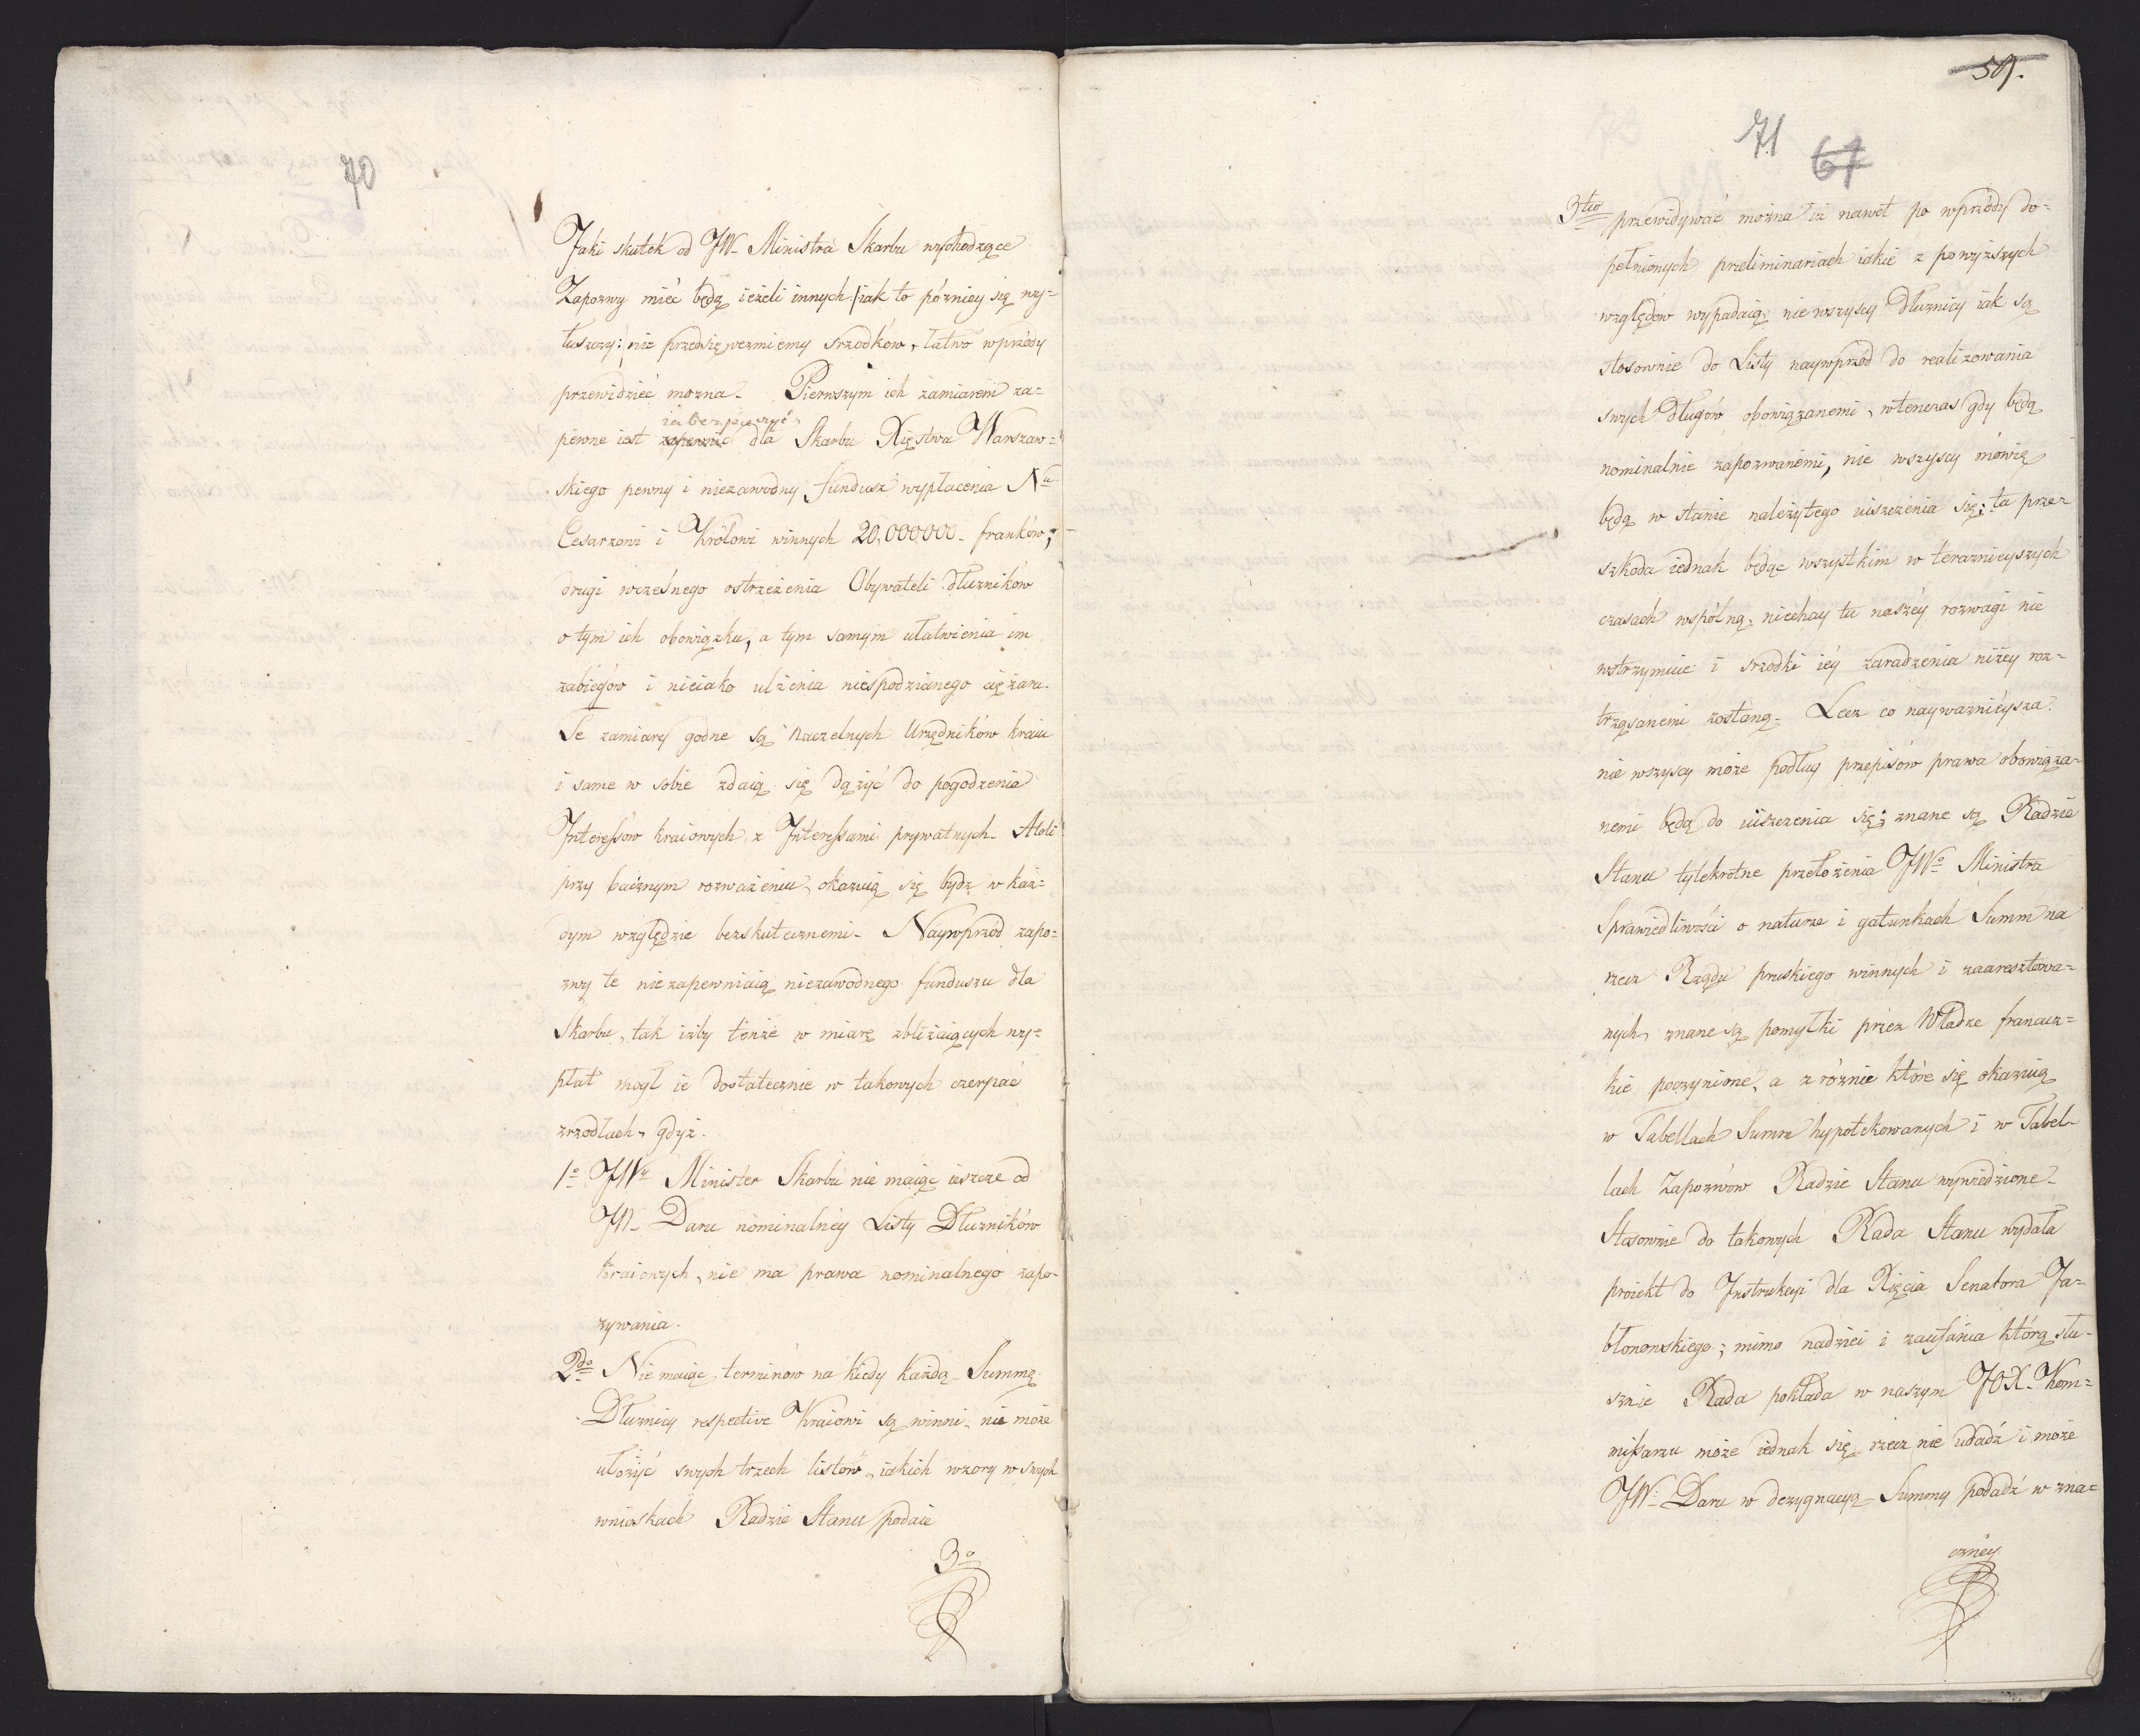 70
Jaki skutek od JW. Ministra Skarbu wychodzące
Zapozwy mieć będą ieżeli innych /:iak to późniey się wy=
łuszczy:/ nie przedsięwezmiemy srzodków, łatwo wprzódy
przewidzieć można. Pierwszym ich zamiarem za=
ubezpieczyć
pewne iest zapewnić dla Skarbu Xięstwa Warszaw=
skiego pewny i niezawodny fundusz wypłacenia Nu
Cesarzowi i Królowi winnych 20,000,000. franków;
drugi wczesnego ostrzeżenia Obywateli dłuzników
o tym ich obowiązku, a tym samym ułatwienia im
zabiegów i nieiako ulżenia niespodzianego ciężaru.
Te zamiary godne są Naczelnych Urzędników kraiu
i same w sobie zdaią się dążyć do pogodzenia
Interessów kraiowych z Interessami prywatnych. Atoli
przy bacznym rozważeniu, okazuią się bydz w każ=
dym względzie bezskutecznemi. Naywprzód zapo=
zwy te nie zapewniaią niezawodnego funduszu dla
Skarbu, tak iżby tenże w miarę zbliżaiących wy=
płat mogł ie dostatecznie w takowych czerpać
zrzodłach, gdyż.
1o JWu Minister Skarbu nie maiąc ieszcze od
JW. Daru nominalney Listy Dłuzników
kraiowych, nie ma prawa nominalnego zapo=
zywania.
2do Nie maiąc terminów na kiedy każdą Summę
Dłuznicy respective Kraiowi są winni, nie może
ułożyć swych trzech listów, iakich wzory w swych
wnioskach Radzie Stanu podaie
3o
59.
71
67
3tio przewidywać można iż nawet po wprzódy do=
pełnionych preliminariach iakie z powyższych
względów wypadaią, nie wszyscy Dłuznicy iak są
stosownie do Listy naywprzód do realizowania
swych długów obowiązanemi, wtenczas gdy będą
nominalnie zapozwanemi, nie wszyscy mówię
będą w stanie należytego uiszczenia się; ta prze=
szkoda iednak będąc wszystkim w teraznieyszych
czasach wspólną, niechay tu naszéy rozwagi nie
wstrzymuie i srzodki iéy zaradzenia niżey roz=
trząsanemi zostaną. Lecz co nayważnieysza:
nie wszyscy może podług przepisów prawa obowiąza=
nemi będą do uiszczenia się; znane są Radzie
Stanu tylekrotne przełożenia JWo Ministra
Sprawiedliwości o naturze i gatunkach Summ na
rzecz Rządu pruskiego winnych i zaaresztowa=
nych, znane są pomyłki przez Władze francuz=
kie poczynione, a z róznic które się okazuią
w Tabellach Summ hypotekowanych i w Tabel=
lach Zapozwów Radzie Stanu wywiedzione.
Stosownie do takowych Rada Stanu wydała
proiekt do Instrukcyi dla Xięcia Senatora Ja=
błonowskiego; mimo nadziei i zaufania którą słu=
sznie Rada pokłada w naszym JOX. Kom=
missarzu może iednak się rzecz nie udadź i może
JW. Daru w dezygnacyą Summy podadź w zna=
czney